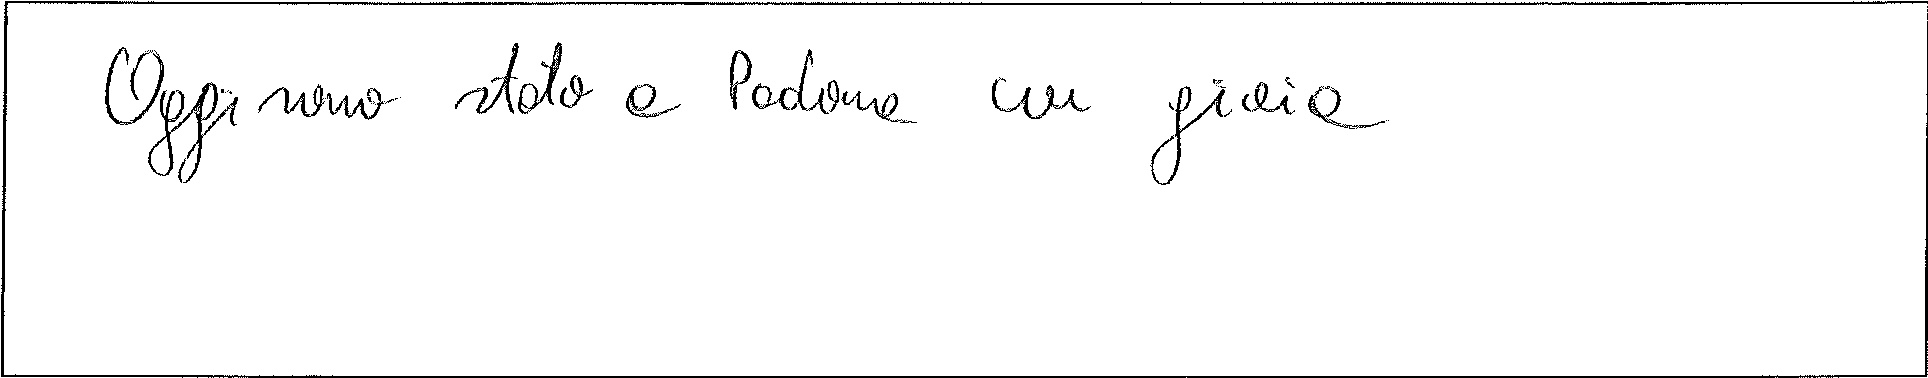 Oggi sono stato a Padova con gioia